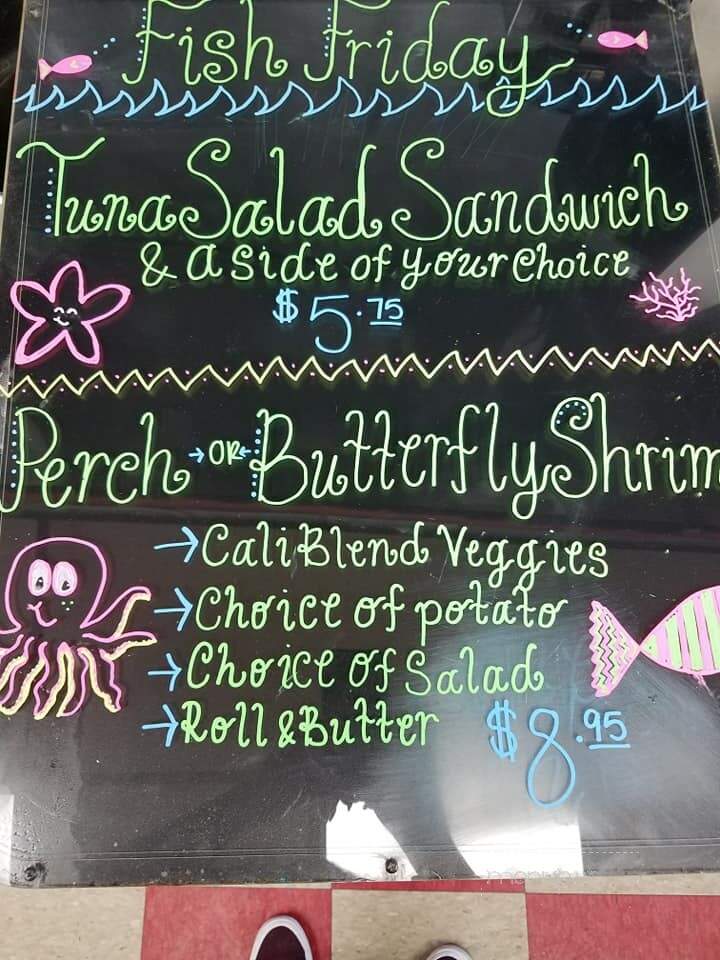 Fish Friday
Tuna Salad Sandwich
& a side of your choice
$5.75
Perch or Butterfly Shrim
Cali Blend Veggies
Choice of potato
Choice of Salad
Roll & Butter $8.95